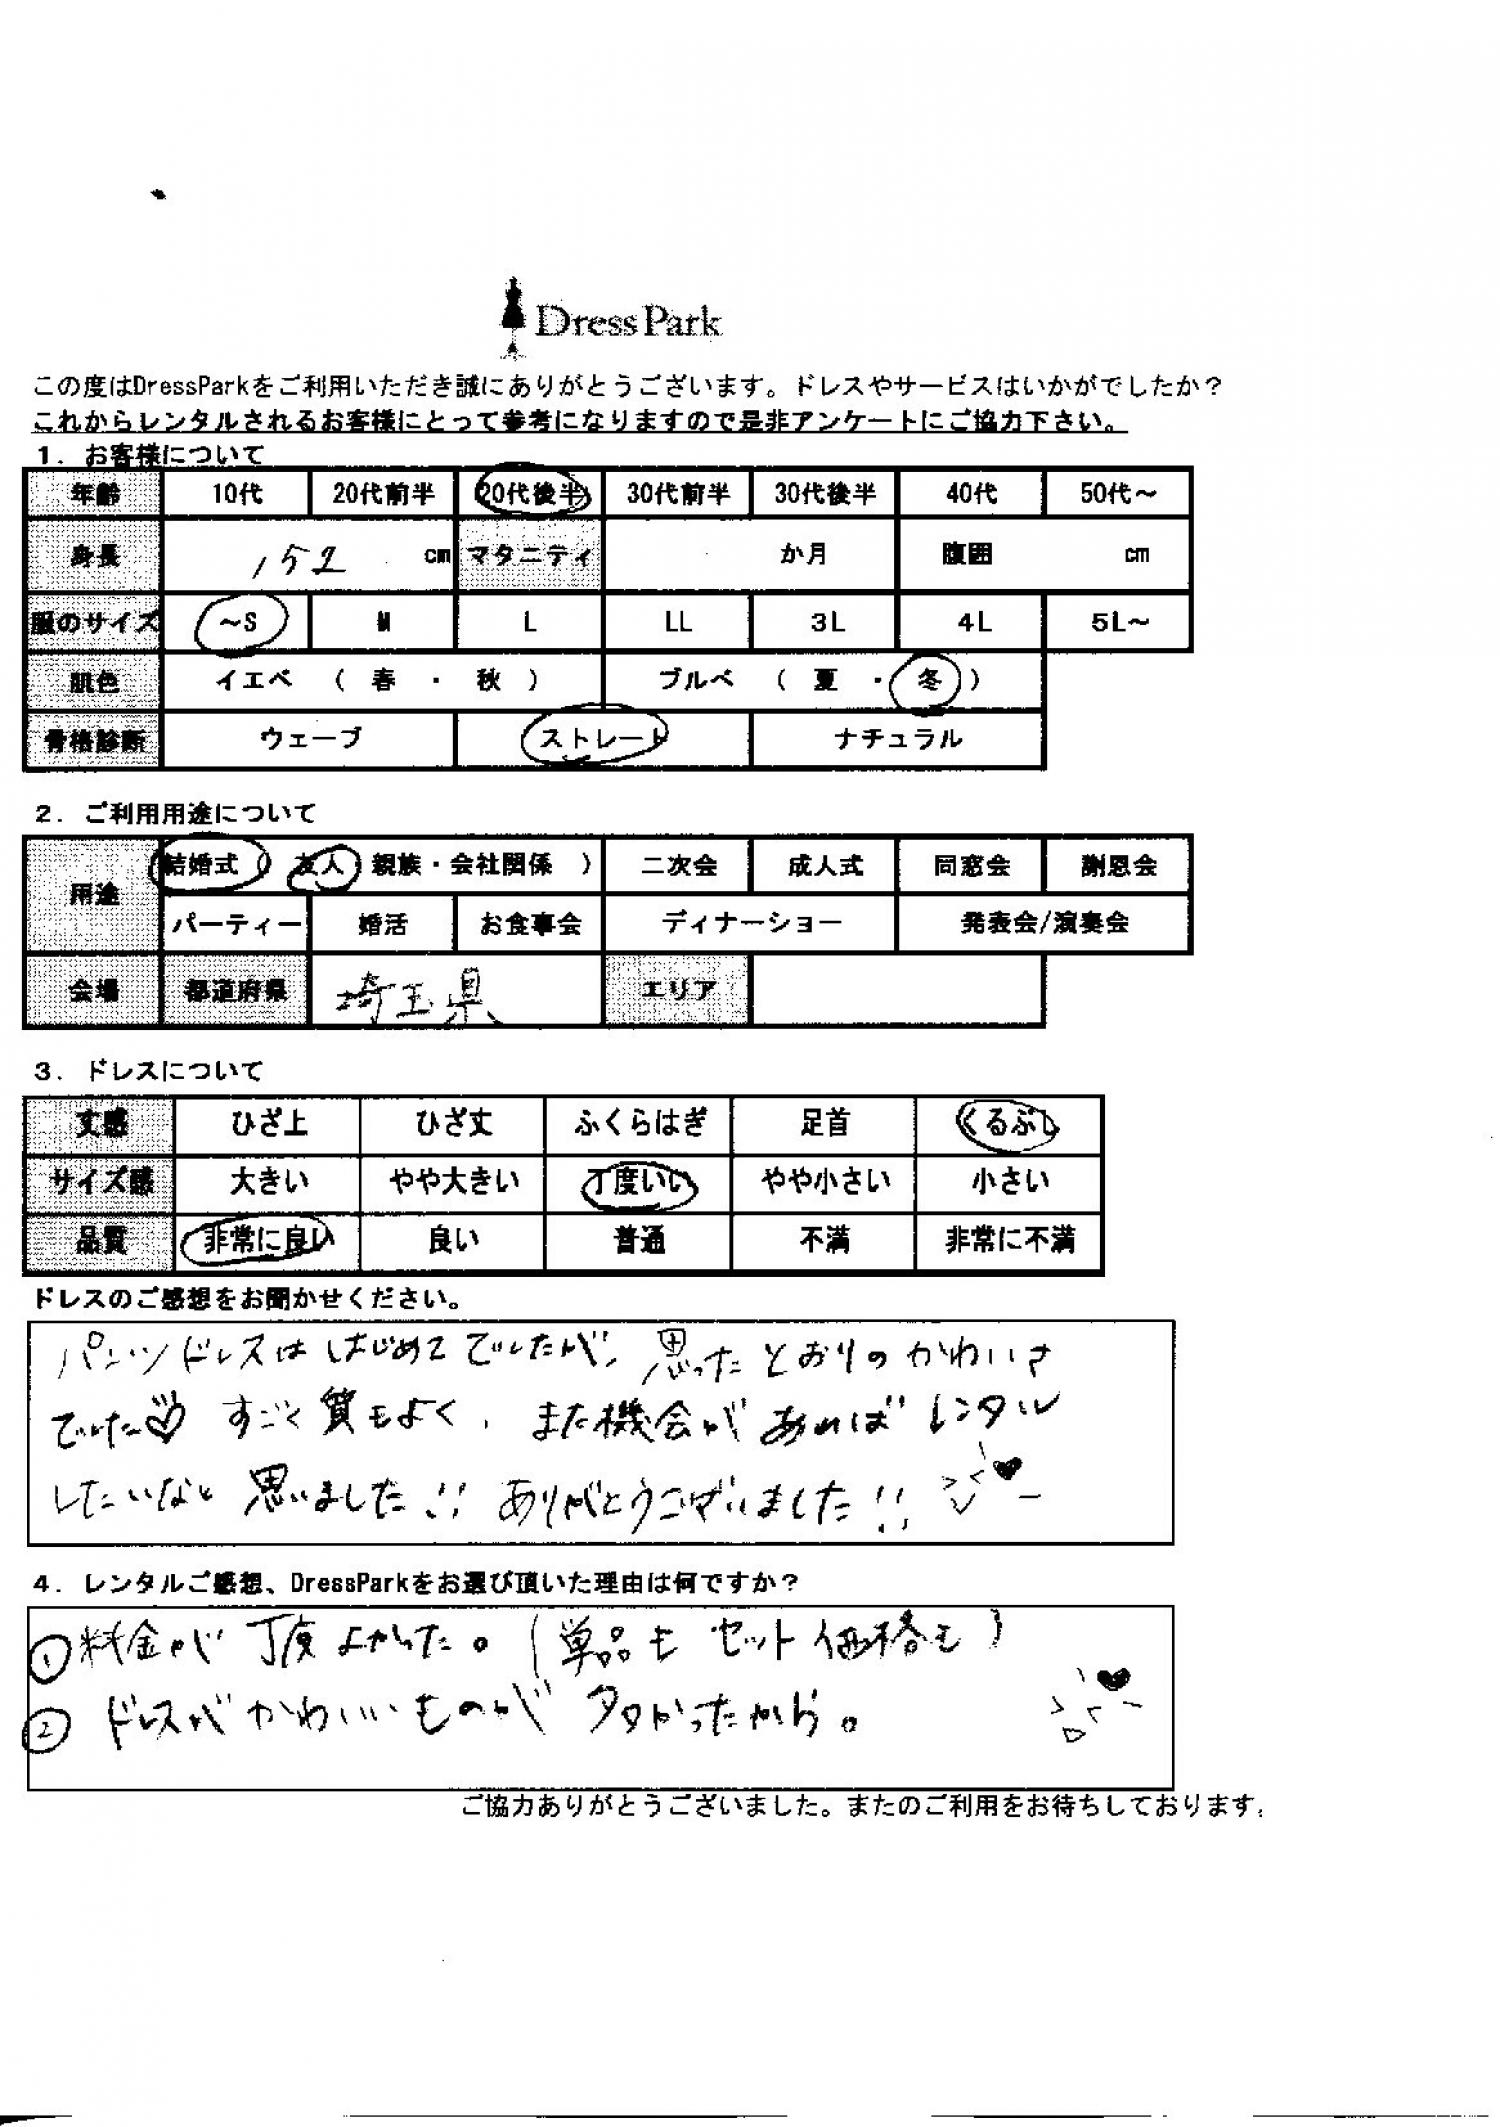 Dress Park
この度はDressParkをご利用いただき誠にありがとうございます。ドレスやサービスはいかがでしたか?
これからレンタルされるお客様にとって参考になりますので是非アンケートにご協力下さい。
1. お客様について
年齢 10代 20代前半 20代後半 30代前半 30代後半 40代 50代~
身長 152 cm マタニティ か月 腹囲 cm
服のサイズ ~S M L LL 3L 4L 5L~
肌色 イエベ ( 春 ・ 秋 ) ブルベ ( 夏 ・ 冬 )
骨格診断 ウェーブ ストレート ナチュラル
2. ご利用用途について
用途 結婚式 ( 友人 親族・会社関係 ) 二次会 成人式 同窓会 謝恩会
パーティー 婚活 お食事会 ディナーショー 発表会/演奏会
会場 都道府県 埼玉県 エリア
3. ドレスについて
丈感 ひざ上 ひざ丈 ふくらはぎ 足首 くるぶし
サイズ感 大きい やや大きい 丁度いい やや小さい 小さい
品質 非常に良い 良い 普通 不満 非常に不満
ドレスのご感想をお聞かせください。
パンツドレスははじめてでしたが、思ったとおりのかわいさ
でした♡ すごく質もよく、また機会があればレンタル
したいなと思いました!! ありがとうございました!!
4. レンタルご感想、DressParkをお選び頂いた理由は何ですか?
① 料金が丁度よかった。(単品もセット価格も)
② ドレスがかわいいものが多かったから。
ご協力ありがとうございました。またのご利用をお待ちしております。